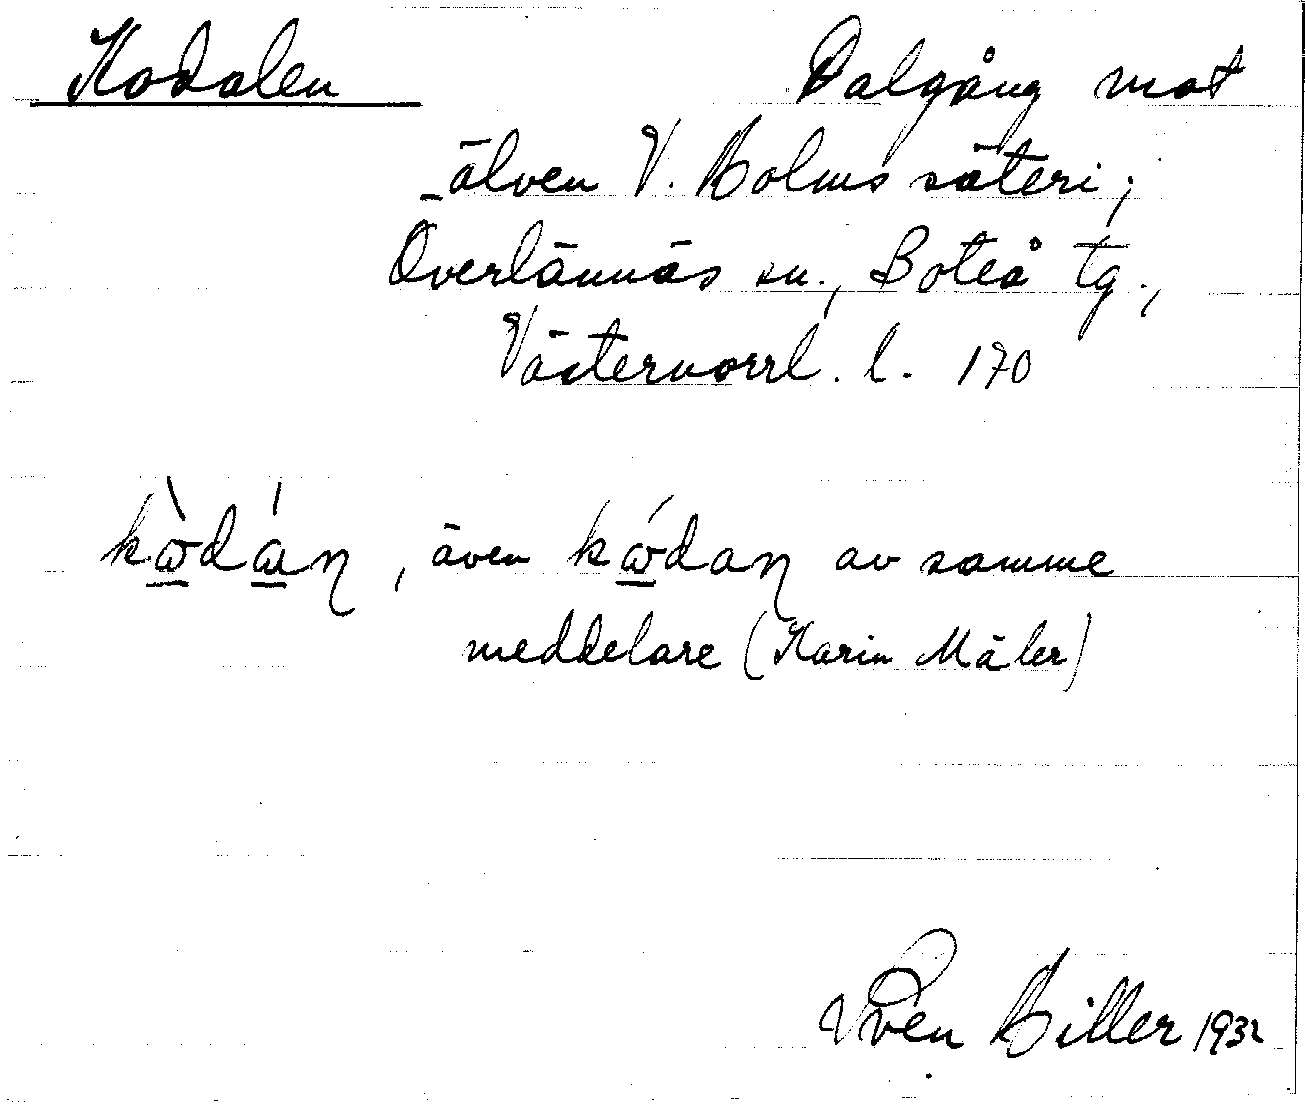 Kodalen Dalgång mot
älven V. Holms säteri;
Överlännäs sn., Boteå tg.,
Västernorrl. l. 170
kὼdάn, även kώdan av samme
meddelare (Karin Mäler)
Sven Hiller 1932